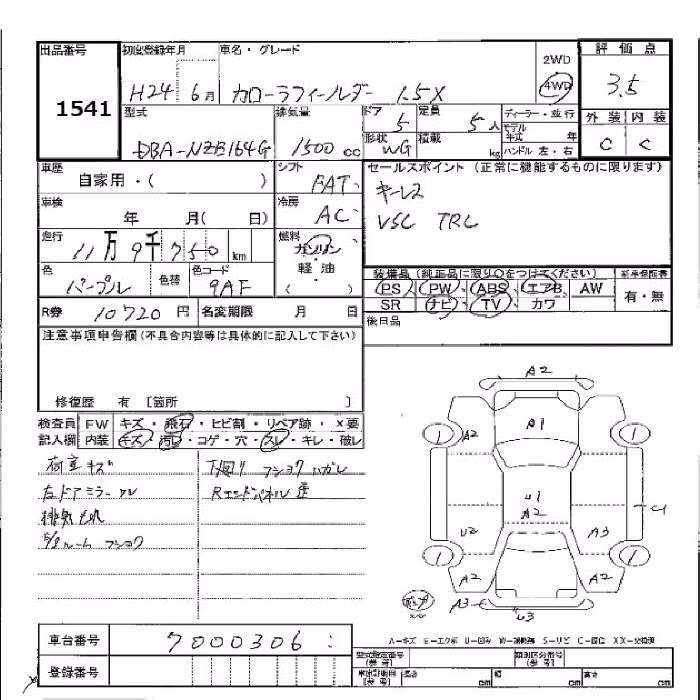 出品番号 初度登録年月 車名・グレード 2WD 評価点
1541 H24 6月 カローラフィールダー 1.5X 4WD 3.5
型式 排気量 ドア 5 定員 5人 ディーラー・並行 外装 内装
DBA-NZE164G 1500cc 形状 WG 積載 kg モデル年式 年 C C
ハンドル 左・右
車歴 シフト セールスポイント (正常に機能するものに限ります)
自家用・( ) FAT キーレス
車検 冷房 VSC TRC
年 月( 日) AC
走行 燃料
11万9千750km ガソリン
軽油
( )
色 色替 色コード 装備品 (純正品に限り○をつけてください) 新車保証書
パープル 9AF PS PW ABS エアB AW 有・無
R券 10720円 名変期限 月 日 SR ナビ TV カワ
注意事項申告欄(不具合内容等は具体的に記入して下さい) 後日品
修復歴 有 〔箇所 〕
検査員 FW キズ・飛石・ヒビ割・リペア跡・X要
記入欄 内装 キズ・汚れ・コゲ・穴・スレ・キレ・破レ
荷室キズ 下廻り フショク ハガレ
左ドアミラー スレ Rエンドパネル 歪
フショク
A2
A1
A2
U1
A2
U2 A3
A2 A2
A3 U3
A-キズ E-エクボ U-凹み W-補修跡 S-サビ C-腐蝕 XX-交換済
車台番号 7000306
登録番号
型式指定番号(参考) 類別区分番号(参考)
長さ cm 幅 cm 高さ cm